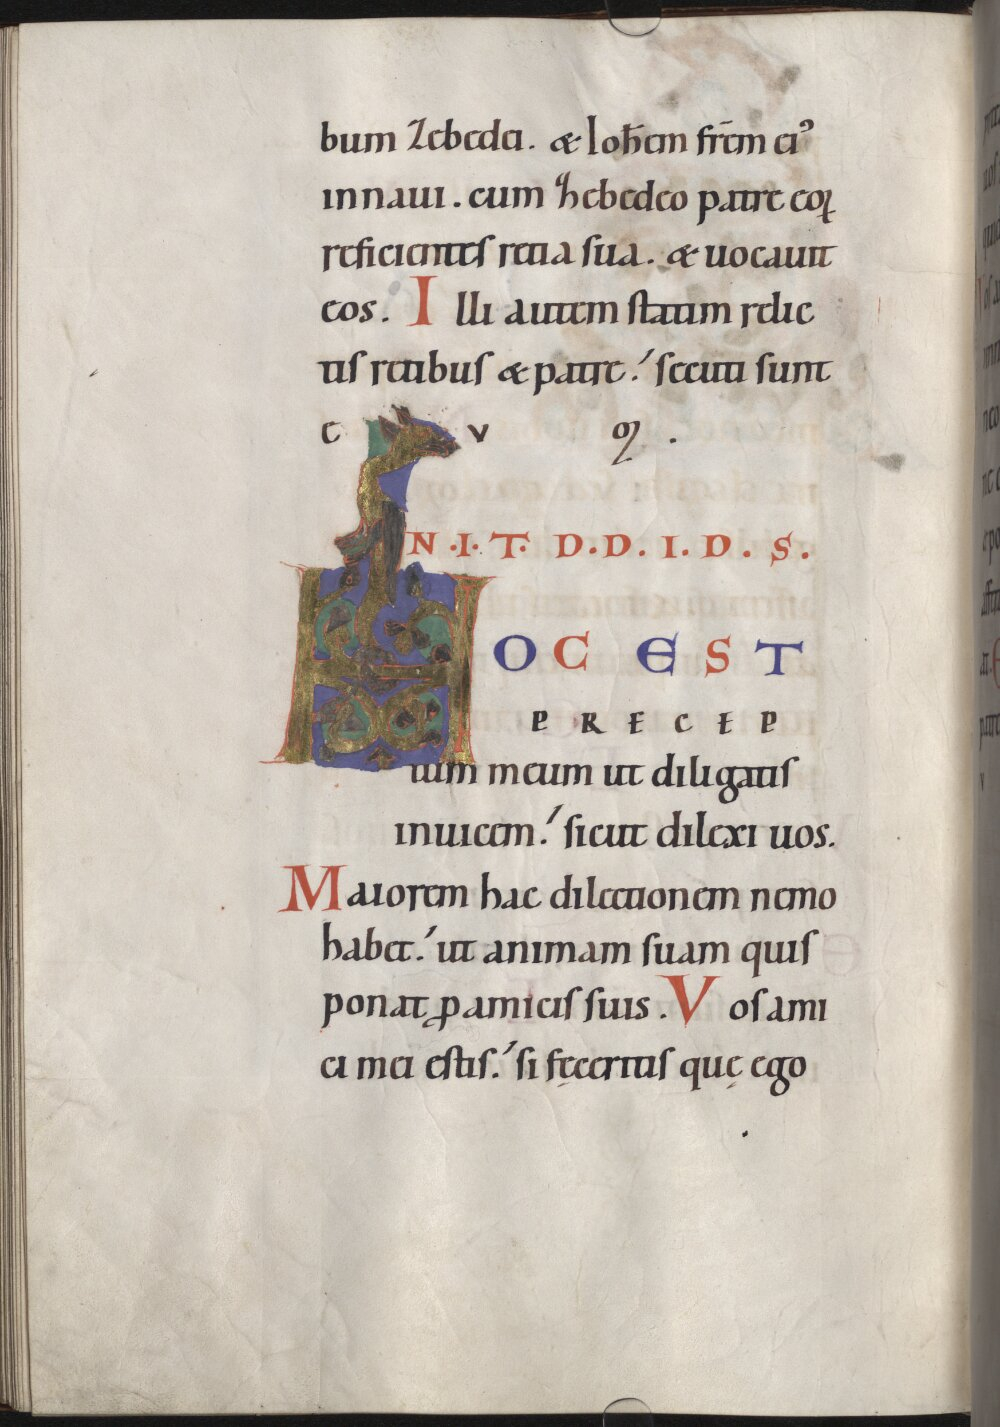 bum Zebedei. & Ioh̄em fr̄em eiꝰ
in naui. cum hebedeo patre eoꝝ
reficientes retia sua. & uocauit
eos. Illi autem statim relic
tis retibus & patre. secuti sunt
e V ꝯ.
N.I.T. D.D.I.D.S.
HOC EST
PRECEP
tum meum ut diligatis
inuicem. sicut dilexi uos.
Maiorem hac dilectionem nemo
habet. ut animam suam quis
ponat ꝓ amicis suis. Vos ami
ci mei estis. si feceritis quę ego